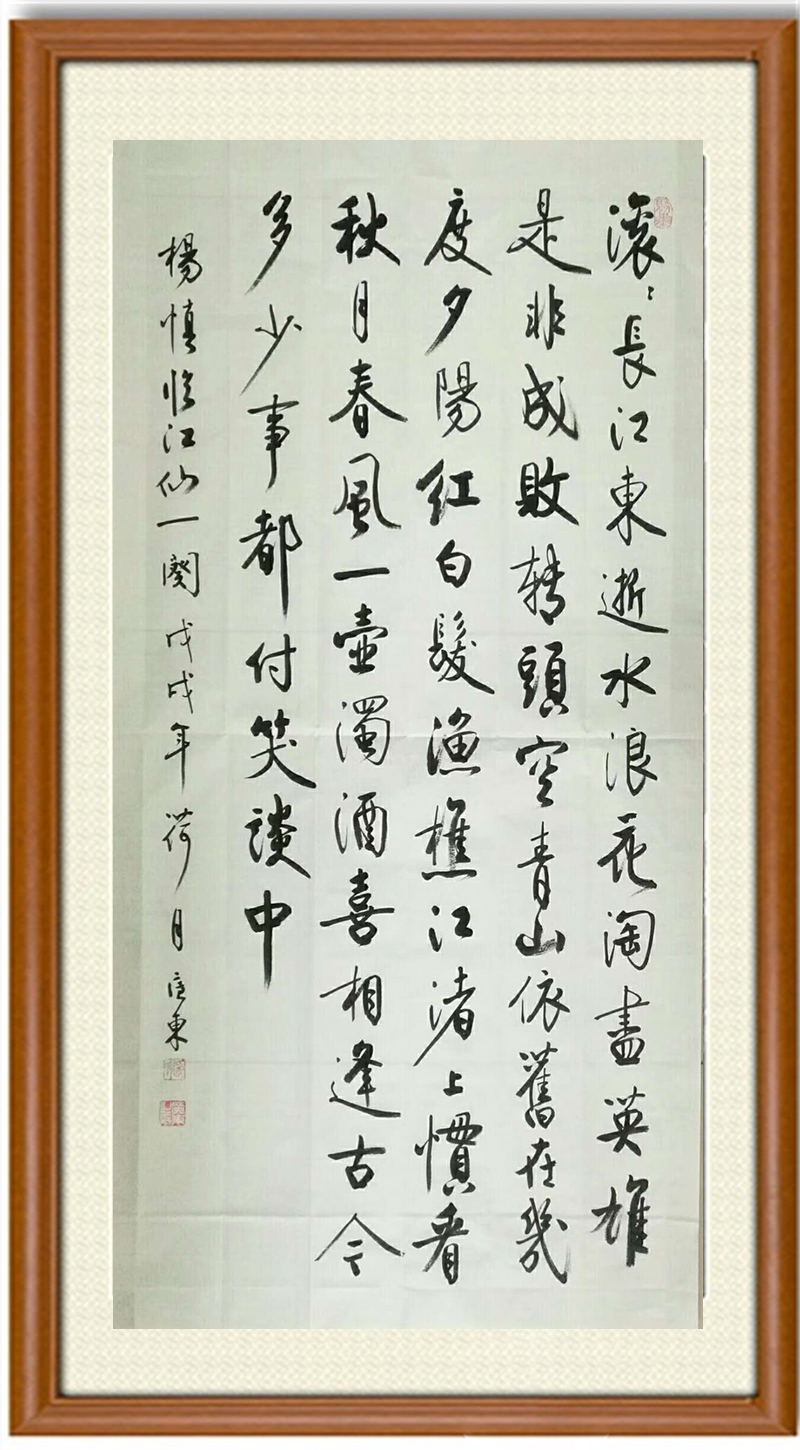 滚〻長江東逝水浪花淘盡英雄
是非成敗转頭空青山依舊在幾
度夕陽紅白髮漁樵江渚上慣看
秋月春風一壺濁酒喜相逢古今
多少事都付笑談中
楊慎临江仙一闋戊戌年荷月